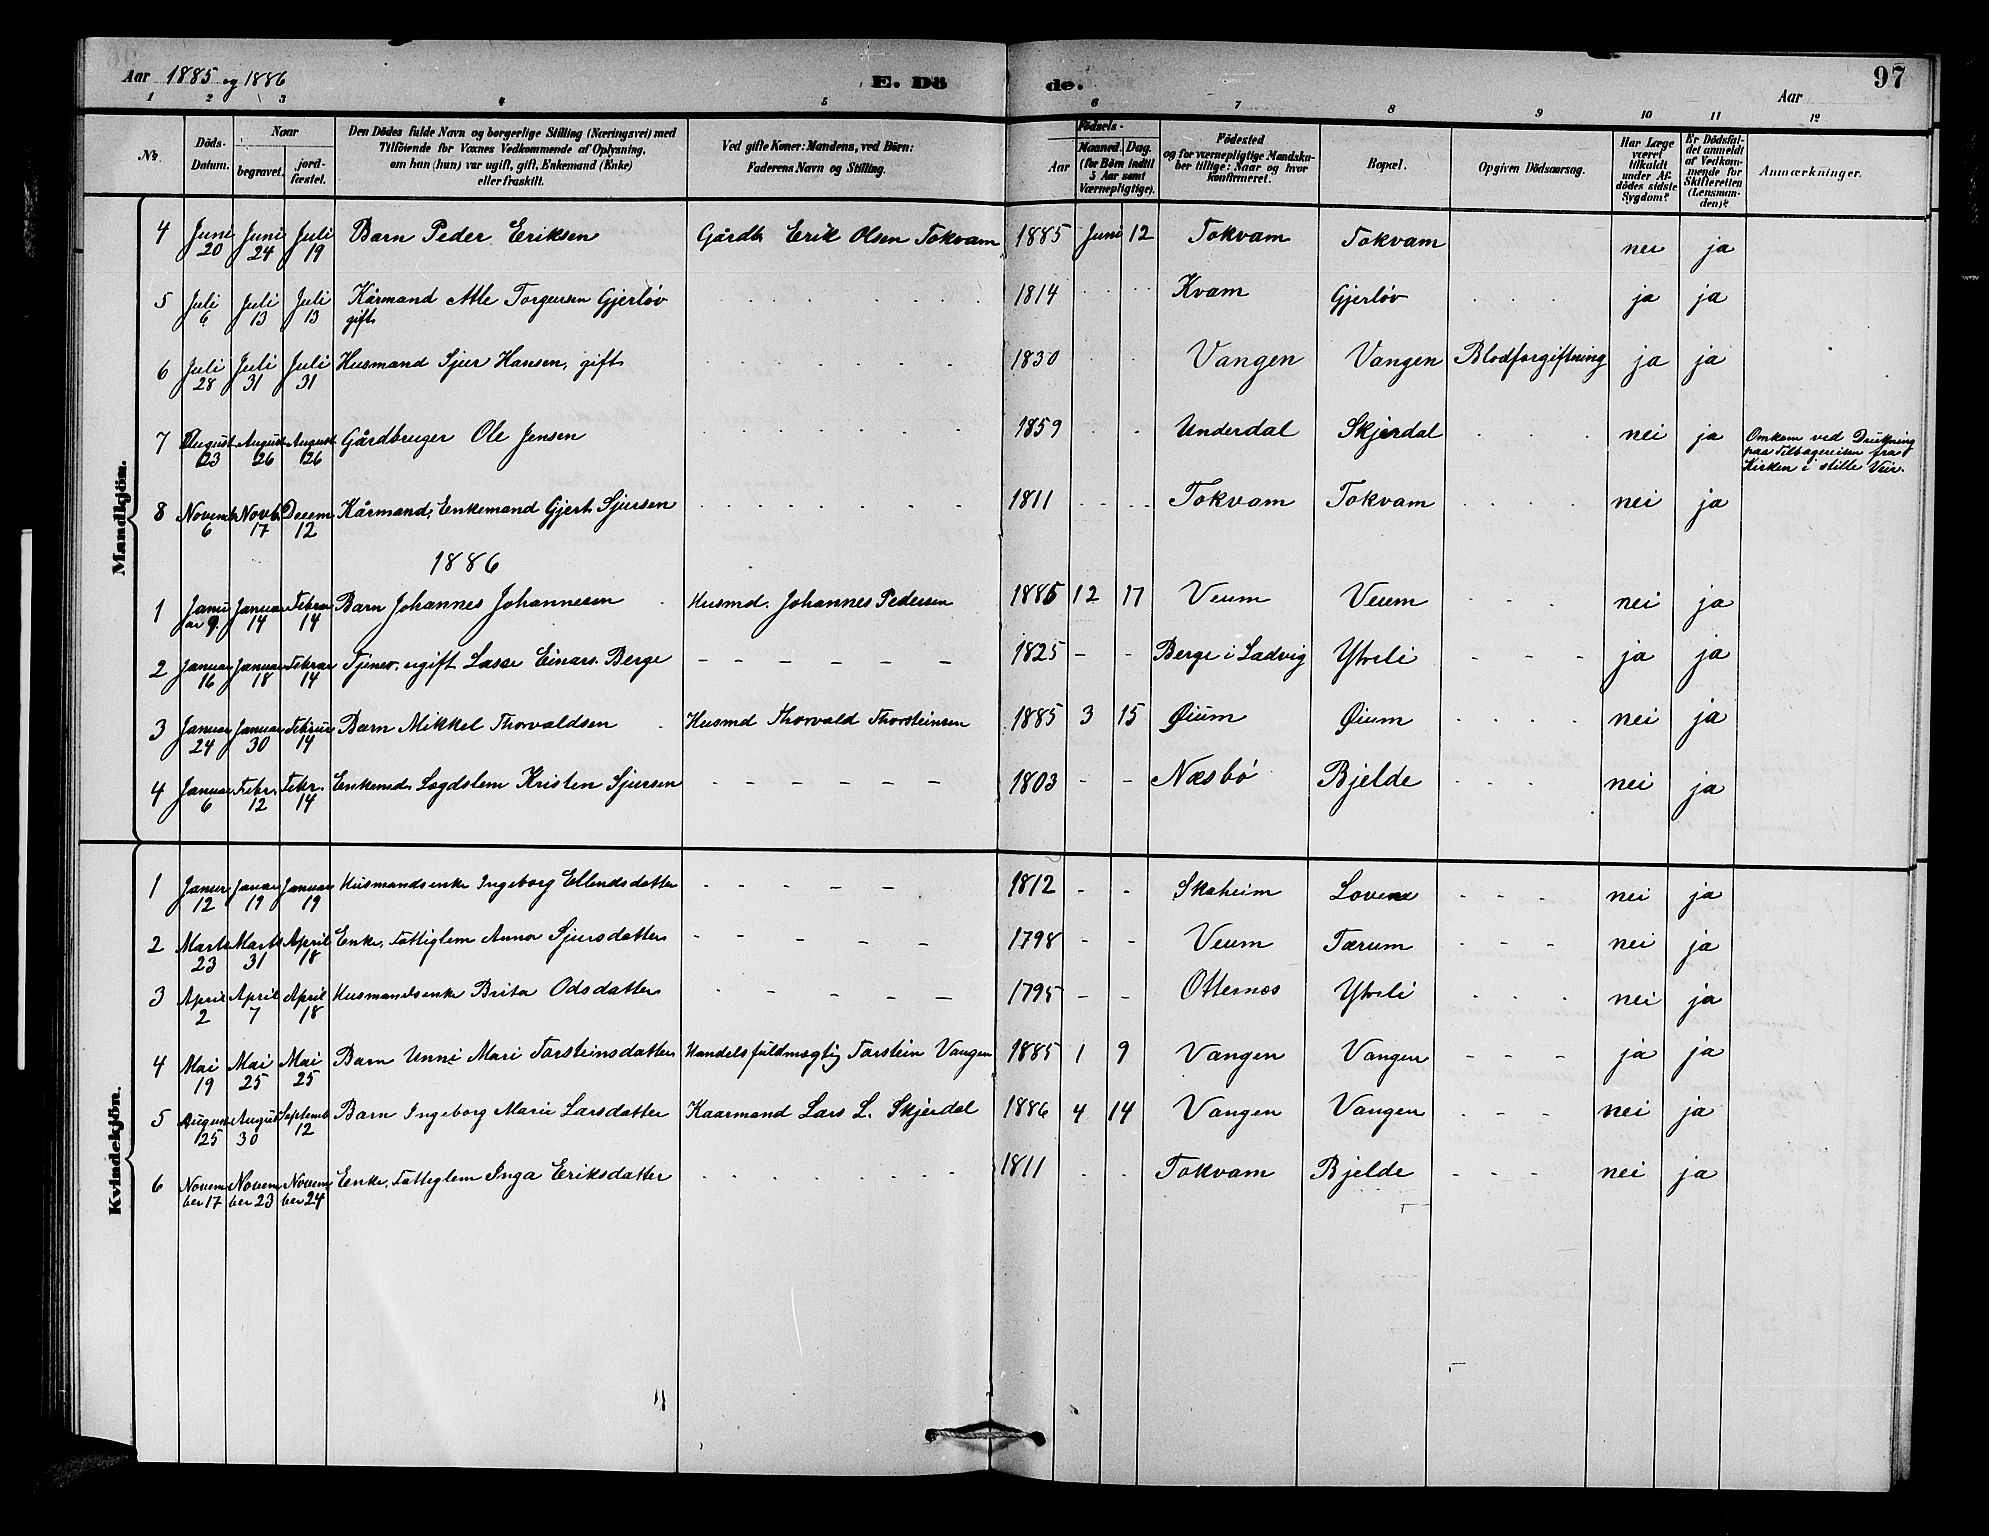 Aar 1885 og 1886 E. Dö de. Aar 97
1 2 3 4 5 6 7 8 9 10 11 12
No. Döds-Datum. Naar begravet. jordfæstet. Den Dödes fulde Navn og borgerlige Stilling (Næringsvei) med Tilföiende for Voxnes Vedkommende af Oplysning, om han (hun) var ugift, gift, Enkemand (Enke) eller fraskilt. Ved gifte Koner: Mandens, ved Börn: Faderens Navn og Stilling. Födsels- Aar Maaned. Dag. (for Börn indtil 5 Aar samt Værnepligtige). Födested og for værnepligtige Mandskaber tillige: Naar og hvor konfirmeret. Bopæl. Opgiven Dödsaarsag. Har Læge været tilkaldt under Afdödes sidste Sygdom? Er Dödsfaldet anmeldt af Vedkommende for Skifteretten (Lensmanden)? Anmærkninger.
Mandkjön.
4 Juni 20 Juni 24 Juli 19 Barn Peder Eriksen Gårdb. Erik Olsen Tokvam 1885 Juni 12 Tokvam Tokvam nei ja
5 Juli 6 Juli 13 Juli 13 Kårmand Atle Torgersen Gjerløv gift 1814 Kvam Gjerløv ja ja
6 Juli 28 Juli 31 Juli 31 Husmand Sjur Hansen, gift 1830 Vangen Vangen Blodforgiftning ja ja
7 August 23 August 26 August 26 Gårdbruger Ole Jensen 1859 Underdal Skjerdal nei ja Omkom ved Drukning paa Tilbagereisen fra Kirken i stille Veir.
8 Novemb. 6 Novb. 17 Decem 12 Kårmand, Enkemand Gjert Sjursen 1811 Tokvam Tokvam nei ja
1886
1 Januar 9. Januar 14 Febra 14 Barn Johannes Johannesen Husmd. Johannes Pedersen 1885 12 17 Veum Veum nei ja
2 Januar 16 Januar 18 Februar 14 Tjener, ugift Lasse Einars. Berge 1825 Berge i Ladvig Ytreli ja ja
3 Januar 24 Januar 30 Februar 14 Barn Mikkel Thorvaldsen Husmd Thorvald Thorsteinsen 1885 3 15 Øium Øium nei ja
4 Januar 6 Febr. 12 Febr. 14 Enkemd. Lægdslem Kristen Sjursen 1803 Næsbø Bjelde nei ja
Kvindekjön.
1 Janur 12 Januar 19 Januar 19 Husmandsenke Ingeborg Ellendsdatter 1812 Skaheim nei ja
2 Marts 23 Marts 31 April 18 Enke, Fattiglem Anna Sjursdatter 1798 Veum Tærum nei ja
3 April 2 April 7 April 18 Husmandsenke Brita Odsdatter 1795 Otternes Ytreli nei ja
4 Mai 19 Mai 25 Mai 25 Barn Unni Mari Torsteinsdatter Handelsfuldmægtig Torstein Vangen 1885 1 9 Vangen Vangen ja ja
5 August 25 August 30 Septemb 12 Barn Ingeborg Marie Larsdatter Kaarmand Lars L. Skjerdal 1886 4 14 Vangen Vangen nei ja
6 November 17 November 23 November 24 Enke, Fattiglem Inga Eriksdatter 1811 Tokvam Bjelde nei ja